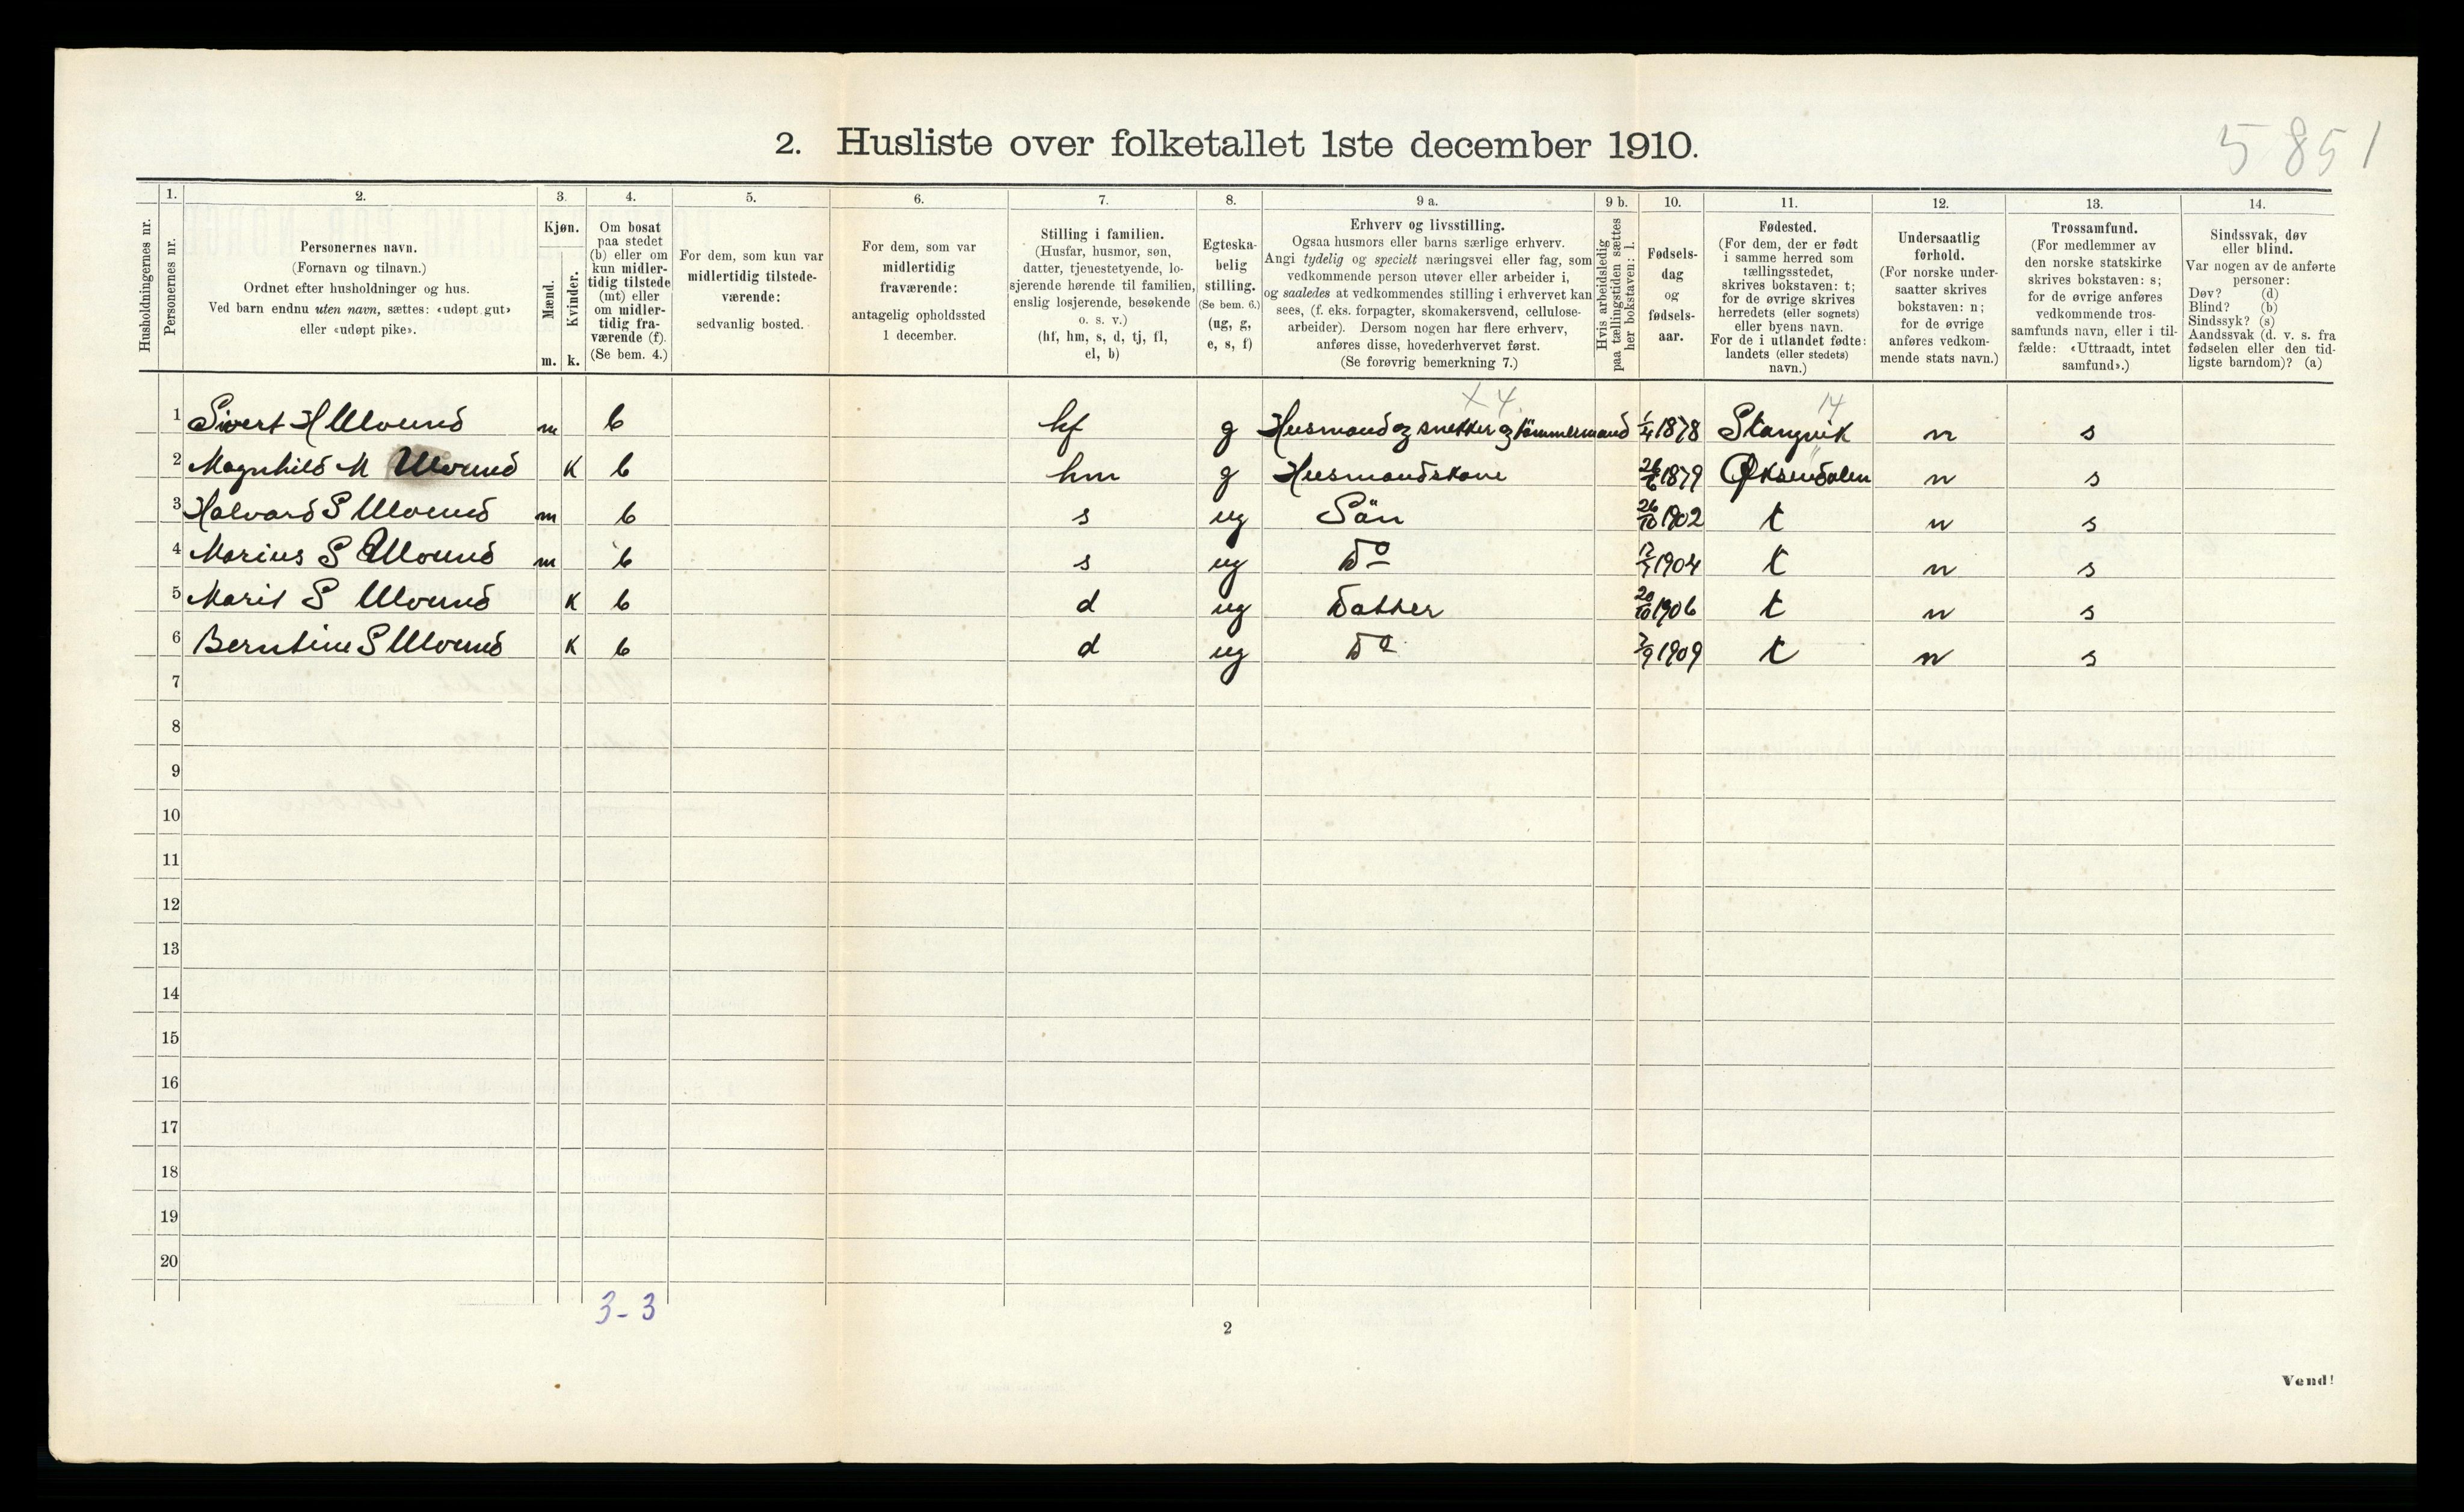 2. Husliste over folketallet 1ste december 1910.
5851
Husholdningernes nr.
1.
Personernes nr.
2.
Personernes navn.
(Fornavn og tilnavn.)
Ordnet efter husholdninger og hus.
Ved barn endnu uten navn, sættes: «udøpt gut»
eller «udøpt pike».
3.
Kjøn.
Mænd.
m.
Kvinder.
k.
4.
Om bosat
paa stedet
(b) eller om
kun midler-
tidig tilstede
(mt) eller
om midler-
tidig fra-
værende (f).
(Se bem. 4.)
5.
For dem, som kun var
midlertidig tilstede-
værende:
sedvanlig bosted.
6.
For dem, som var
midlertidig
fraværende:
antagelig opholdssted
1 december.
7.
Stilling i familien.
(Husfar, husmor, søn,
datter, tjenestetyende, lo-
sjerende hørende til familien,
enslig losjerende, besøkende
o. s. v.)
(hf, hm, s, d, tj, fl,
el, b)
8.
Egteska-
belig
stilling.
(Se bem. 6.)
(ug, g,
e, s, f)
9 a.
Erhverv og livsstilling.
Ogsaa husmors eller barns særlige erhverv.
Angi tydelig og specielt næringsvei eller fag, som
vedkommende person utøver eller arbeider i,
og saaledes at vedkommendes stilling i erhvervet kan
sees, (f. eks. forpagter, skomakersvend, cellulose-
arbeider). Dersom nogen har flere erhverv,
anføres disse, hovederhvervet først.
(Se forøvrig bemerkning 7.)
9 b.
Hvis arbeidsledig
paa tællingstiden sættes
her bokstaven: l.
10.
Fødsels-
dag
og
fødsels-
aar.
11.
Fødested.
(For dem, der er født
i samme herred som
tællingsstedet,
skrives bokstaven: t;
for de øvrige skrives
herredets (eller sognets)
eller byens navn.
For de i utlandet fødte:
landets (eller stedets)
navn.)
12.
Undersaatlig
forhold.
(For norske under-
saatter skrives
bokstaven: n;
for de øvrige
anføres vedkom-
mende stats navn.)
13.
Trossamfund.
(For medlemmer av
den norske statskirke
skrives bokstaven: s;
for de øvrige anføres
vedkommende tros-
samfunds navn, eller i til-
fælde: «Uttraadt, intet
samfund».)
14.
Sindssvak, døv
eller blind.
Var nogen av de anførte
personer:
Døv? (d)
Blind? (b)
Sindssyk? (s)
Aandssvak (d. v. s. fra
fødselen eller den tid-
ligste barndom)? (a)
X 4. 14
1 Sivert H Ulvund m b hf g Husmand og snekker og tömmermand 1/4 1878 Stangvik n s
2 Magnhild M Ulvund k b hm g Husmandskone 1879 Øksendalen n s
3 Halvard S Ulvund m b s ug Sön 26/10 1902 t n s
4 Marius S Ulvund m b s ug Do 1904 t n s
5 Marit S Ulvund k b d ug Datter 20/10 1906 t n s
6 Berntine S Ulvund k b d ug Do 7/9 1909 t n s
7
8
9
10
11
12
13
14
15
16
17
18
19
20
3-3
2
Vend!